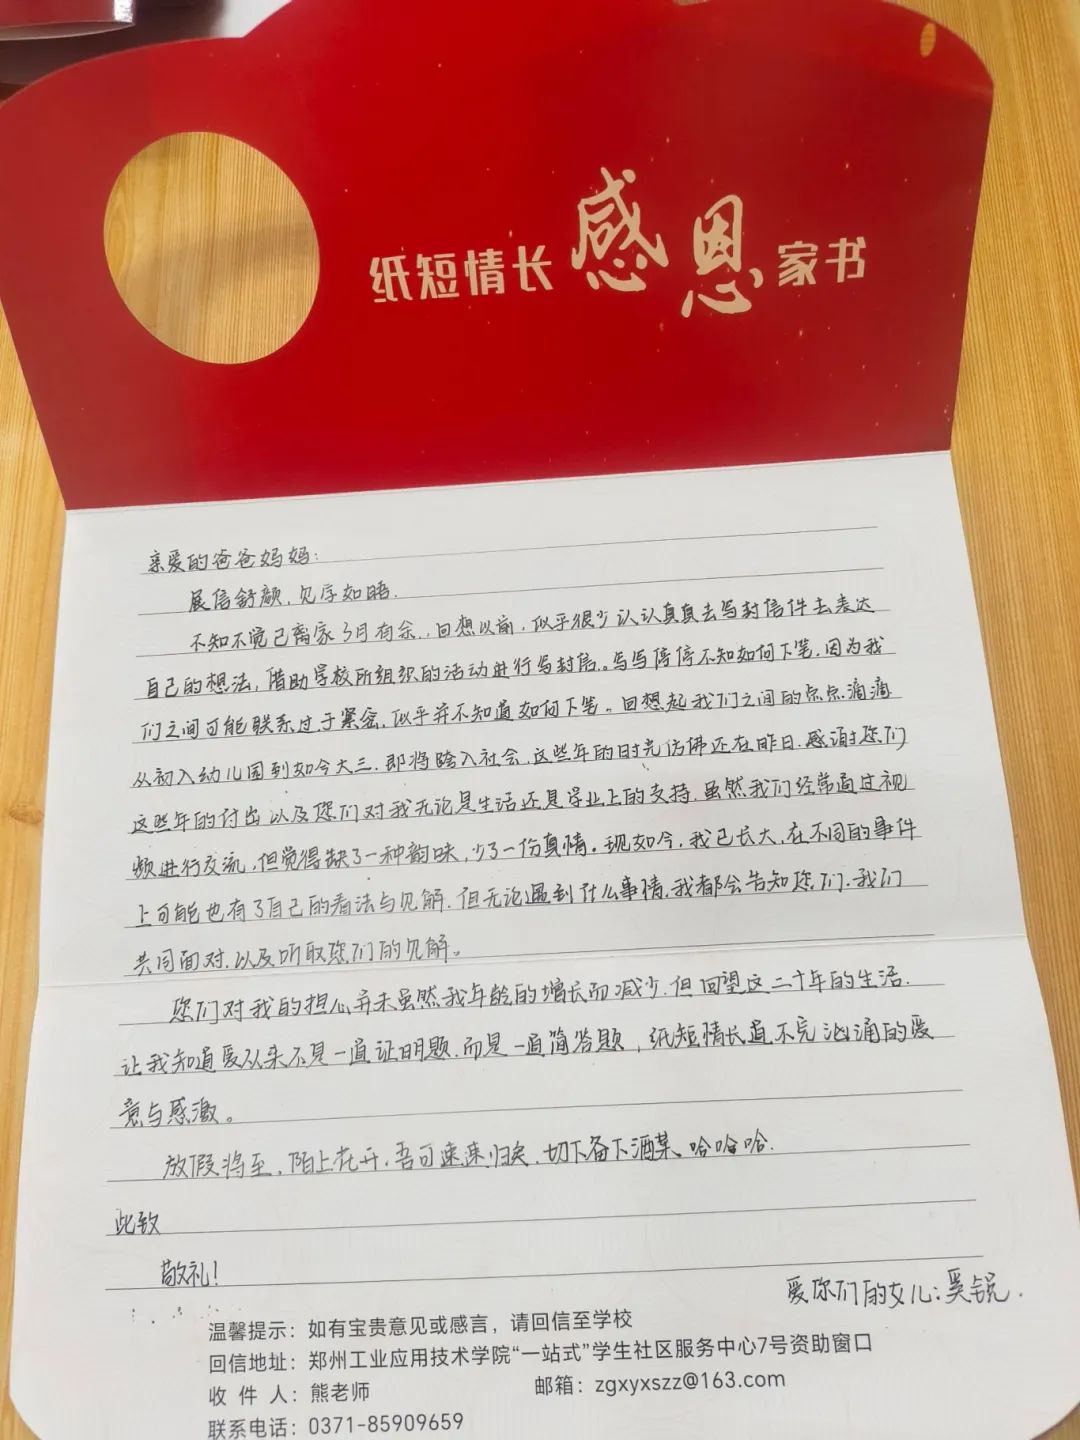 纸短情长感恩家书
亲爱的爸爸妈妈：
展信舒颜，见字如晤.
不知不觉已离家3月有余，回想以前，似乎很少认认真真去写封信件去表达
自己的想法，借助学校所组织的活动进行写封信。写写停停不知如何下笔，因为我
们之间可能联系过于紧密，似乎并不知道如何下笔。回想起我们之间的点点滴滴
从初入幼儿园到如今大三，即将踏入社会，这些年的时光仿佛还在昨日，感谢您们
这些年的付出以及您们对我无论是生活还是学业上的支持，虽然我们经常通过视
频进行交流，但觉得缺了一种韵味，少了一份真情。现如今，我已长大，在不同的事件
上可能也有了自己的看法与见解，但无论遇到什么事情，我都会告知您们，我们
共同面对，以及听取您们的见解。
您们对我的担心并未虽然我年龄的增长而减少，但回望这二十年的生活，
让我知道爱从来不是一道证明题，而是一道简答题，纸短情长道不完汹涌的爱
意与感激。
放假将至，陌上花开，吾可速速归矣，切下备下酒菜，哈哈哈.
此致
敬礼！
爱你们的女儿：奚锐.
温馨提示：如有宝贵意见或感言，请回信至学校
回信地址：郑州工业应用技术学院“一站式”学生社区服务中心7号资助窗口
收 件 人：熊老师 邮箱：zgxyxszz@163.com
联系电话：0371-85909659